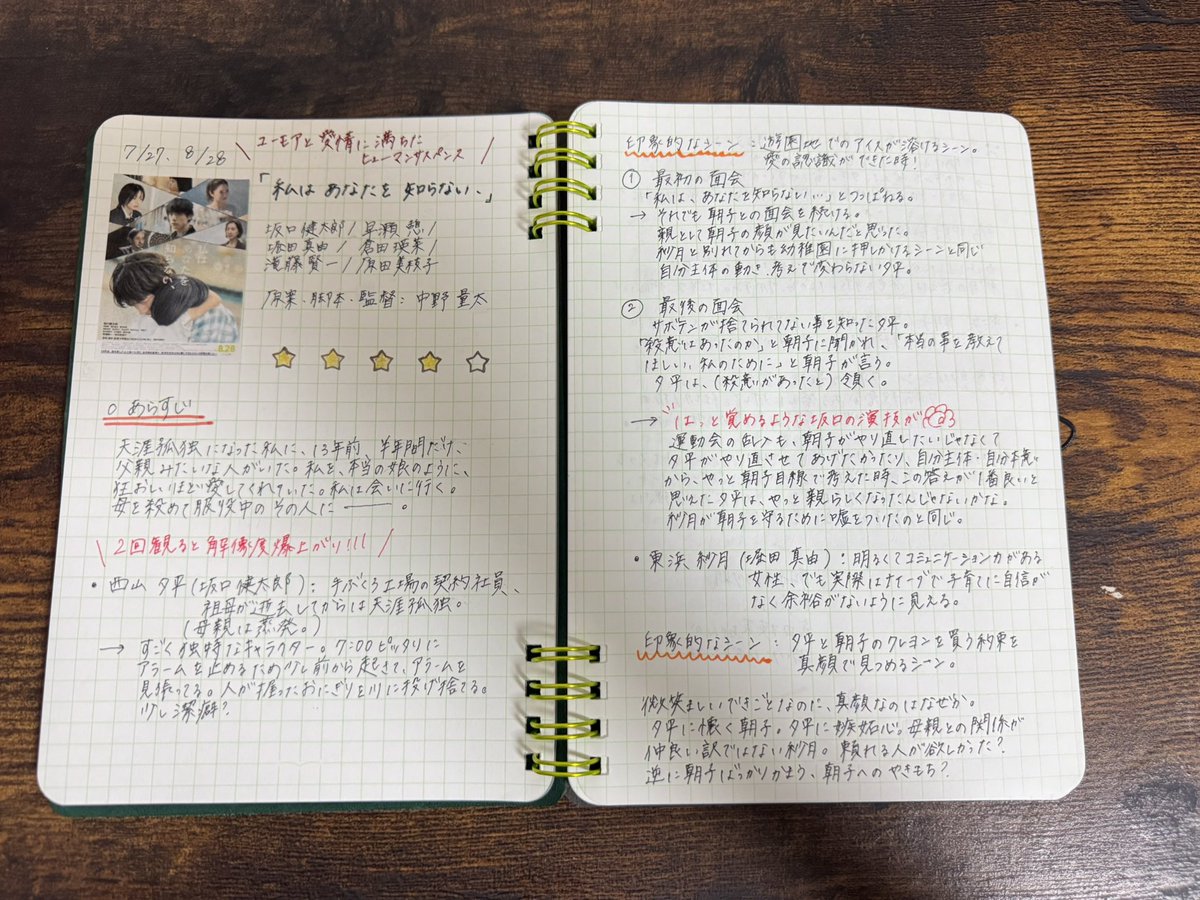 7/27、8/28
\ ユーモアと愛情に満ちた
ヒューマンサスペンス /
「私は あなたを 知らない、」
坂口健太郎/ 早瀬 憩/
堀田真由/ 倉田瑛茉/
滝藤賢一/ 原田美枝子
原案・脚本・監督: 中野 量太
8.28
○ あらすじ
天涯孤独になった私に、13年前、半年間だけ、
父親みたいな人がいた。私を、本当の娘のように、
狂おしいほど愛してくれていた。私は会いに行く。
母を殺めて服役中のその人に ――。
\ 2回観ると解像度爆上がり!!! /
• 西山 夕平(坂口健太郎): 手ぶくろ工場の契約社員、
祖母が逝去してからは天涯孤独。
(母親は蒸発。)
→ すごく独特なキャラクター。7:00ピッタリに
アラームを止めるため少し前から起きて、アラームを
見張ってる。人が握ったおにぎりを川に投げ捨てる。
少し潔癖?
印象的なシーン : 遊園地でのアイスが溶けるシーン。
愛の認識ができた時!
① 最初の面会
「私は、あなたを知らない、、」とつっぱねる。
→ それでも朝子との面会を続ける。
親として朝子の顔が見たいんだと思った。
紗月と別れてからも幼稚園に押しかけるシーンと同じ
自分主体の動き、考えで変わらない夕平。
② 最後の面会
サボテンが捨てられてない事を知った夕平。
「殺意はあったのか」と朝子に聞かれ、「本当の事を教えて
ほしい、私のために」と朝子が言う。
夕平は、(殺意があったと)頷く。
→ はっと覚めるような坂口の演技が
運動会の乱入も、朝子がやり直したいじゃなくて
夕平がやり直させてあげたかったり、自分主体・自分本意
から、やっと朝子目線で考えた時、この答えが1番良いと
思えた夕平は、やっと親らしくなったんじゃないかな。
紗月が朝子を守るために嘘をついたのと同じ。
• 東浜 紗月(堀田 真由): 明るくてコミュニケーション力がある
女性、でも実際はナイーブで子育てに自信が
なく余裕がないように見える。
印象的なシーン : 夕平と朝子のクレヨンを買う約束を
真顔で見つめるシーン。
微笑ましいできごとなのに、真顔なのはなぜか。
夕平に懐く朝子。夕平に嫉妬心。母親との関係が
仲良い訳ではない紗月。頼れる人が欲しかった?
逆に朝子ばっかりかまう、朝子へのやきもち?